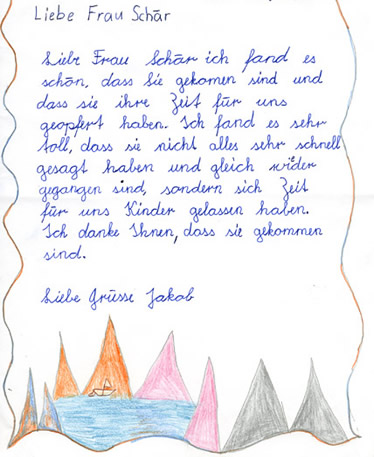 Liebe Frau Schär
Liebe Frau Schär ich fand es
schön, dass Sie gekomen sind und
dass sie ihre Zeit für uns
geopfert haben. Ich fand es sehr
toll, dass sie nicht alles sehr schnell
gesagt haben und gleich wider
gegangen sind, sondern sich Zeit
für uns Kinder gelassen haben.
Ich danke Ihnen, dass sie gekommen
sind.
Liebe Grüsse Jakob